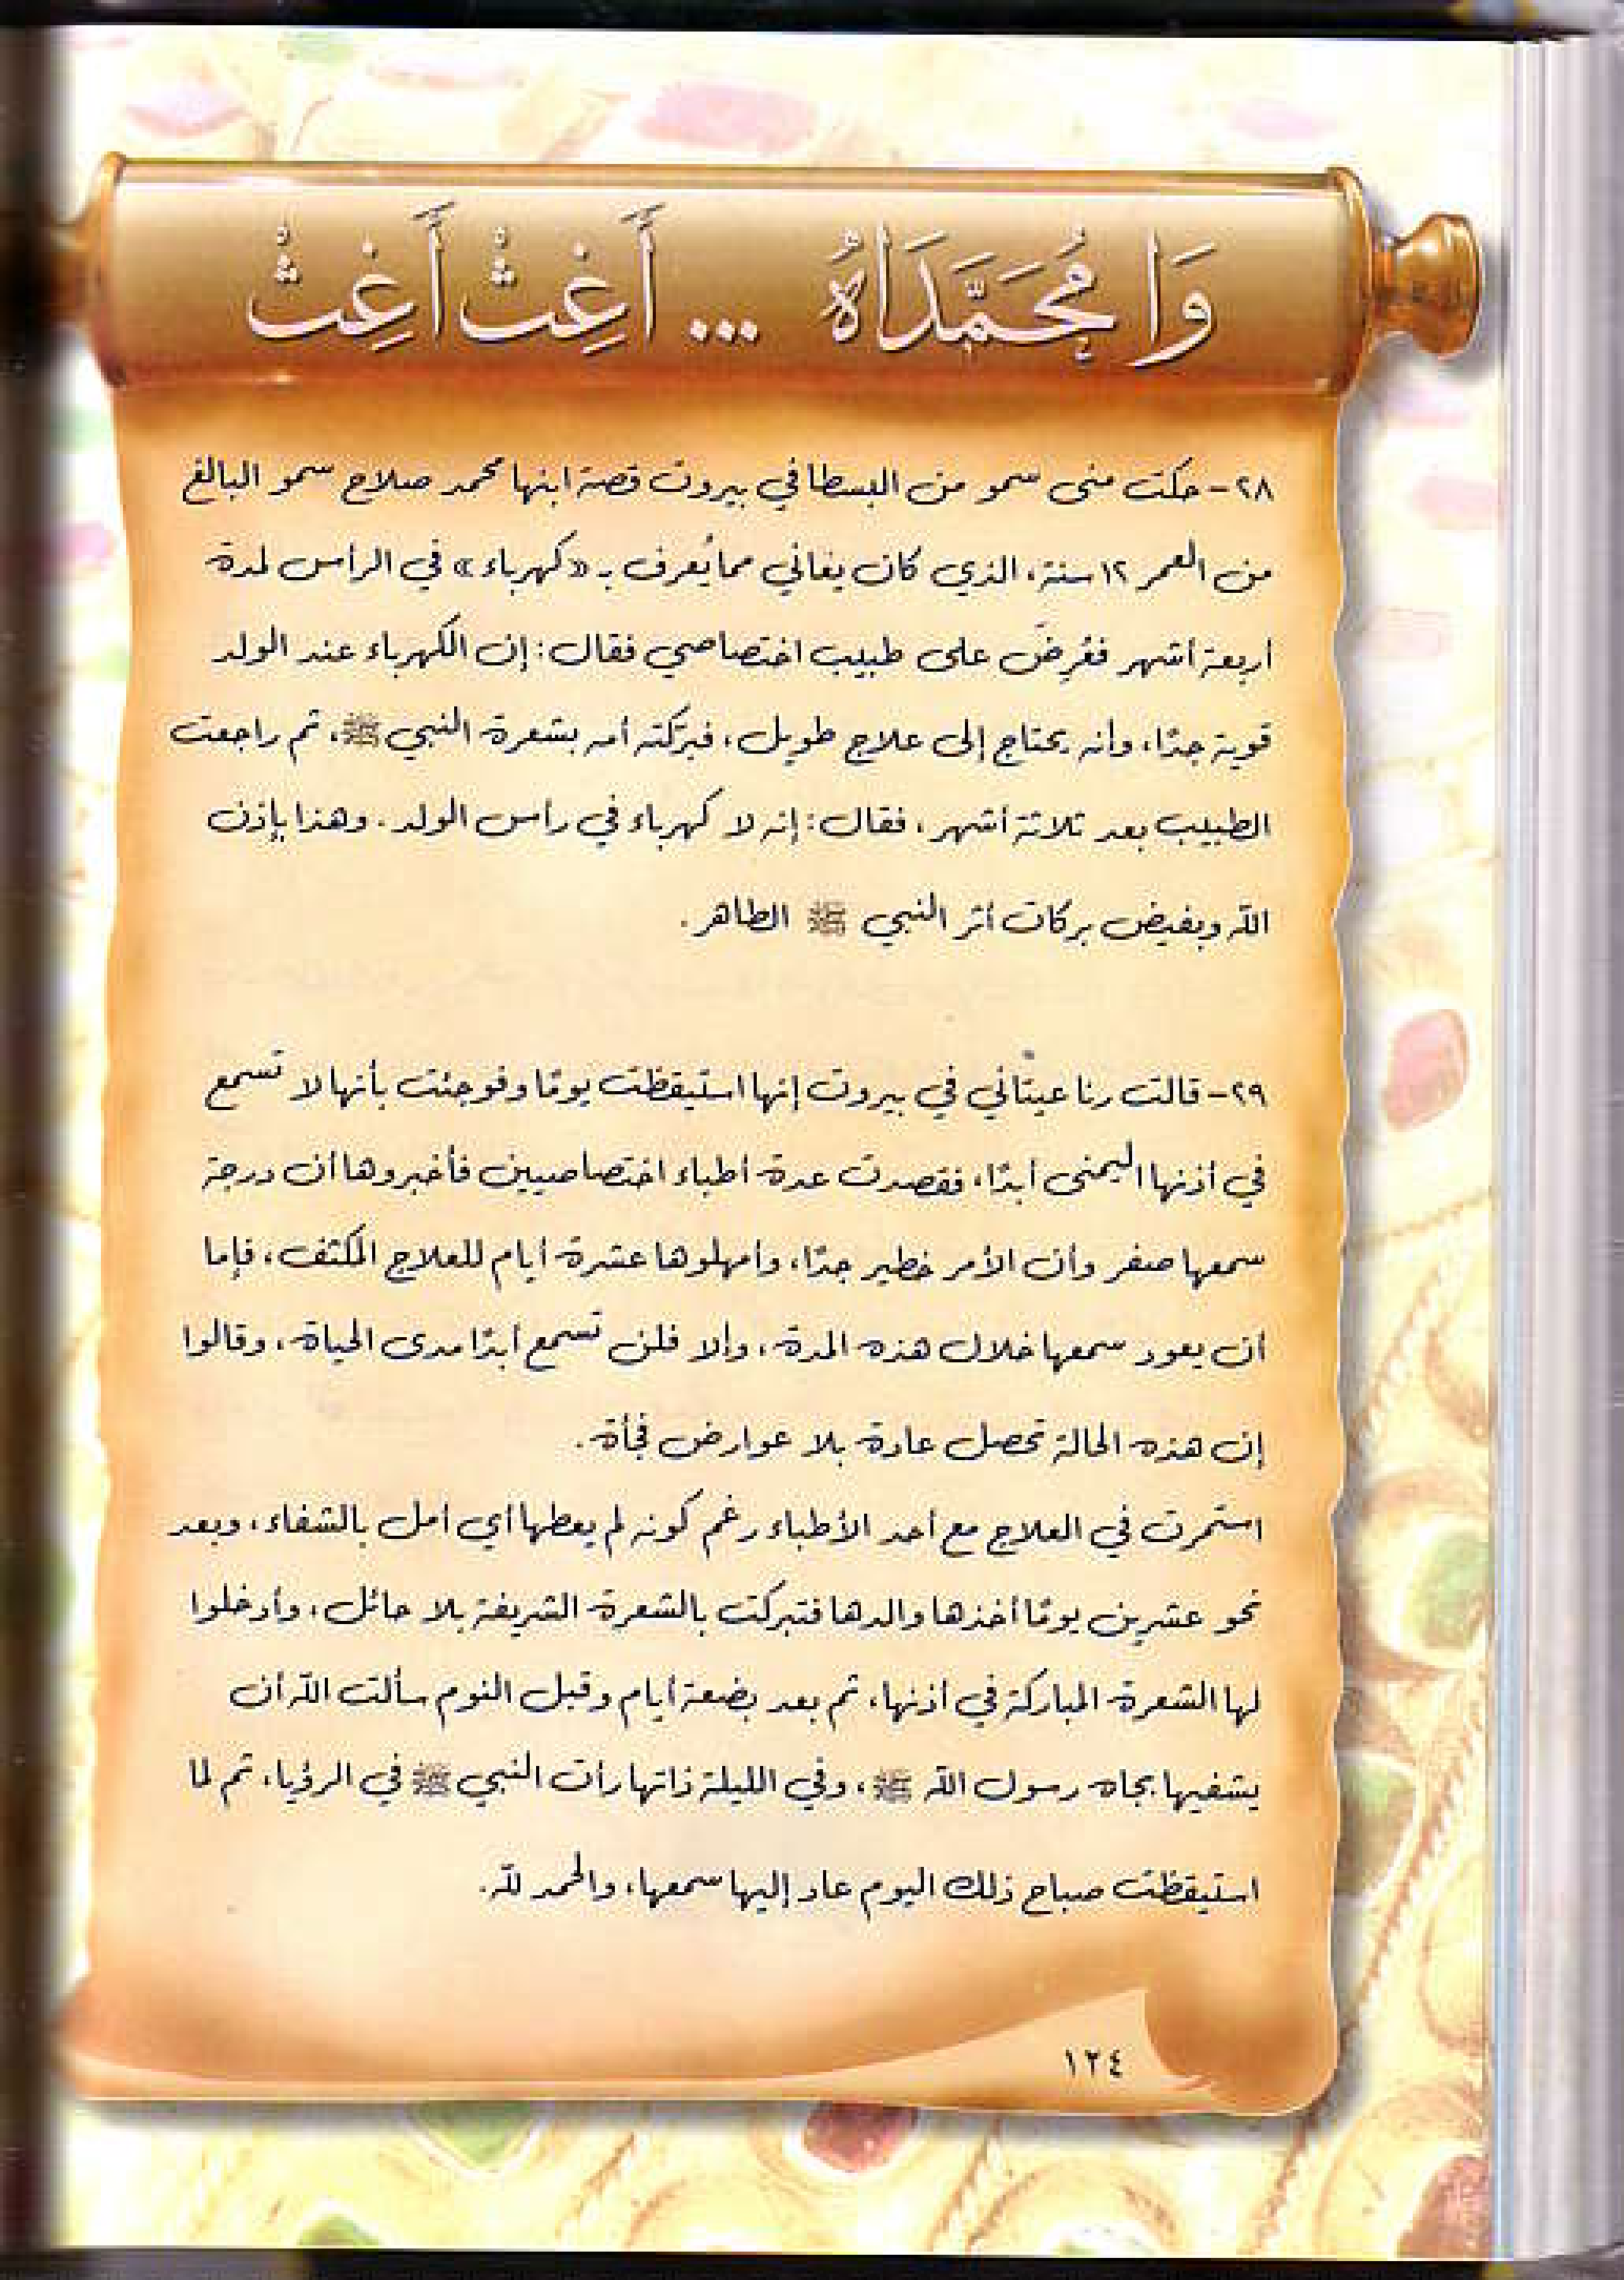 وَا مُحَمَّدَاهُ ... أَغِثْ أَغِثْ
٢٨- حكت منى سمو من البسطا في بيروت قصة ابنها محمد صلاح سمو البالغ
من العمر ١٢ سنة، الذي كان يعاني مما يُعرف بـ «كهرباء» في الرأس لمدة
أربعة أشهر فعُرِضَ على طبيب اختصاصي فقال: إن الكهرباء عند الولد
قوية جدًا، وأنه يحتاج إلى علاج طويل، فبرَّكته أمه بشعرة النبي ﷺ، ثم راجعت
الطبيب بعد ثلاثة أشهر، فقال: إنه لا كهرباء في رأس الولد. وهذا بإذن
الله وبفيض بركات أثر النبي ﷺ الطاهر.
٢٩- قالت رنا عيتاني في بيروت إنها استيقظت يومًا وفوجئت بأنها لا تسمع
في أذنها اليمنى أبدًا، فقصدت عدة أطباء اختصاصيين فأخبروها أن درجة
سمعها صفر وأن الأمر خطير جدًا، وأمهلوها عشرة أيام للعلاج المكثف، فإما
أن يعود سمعها خلال هذه المدة، وإلا فلن تسمع أبدًا مدى الحياة، وقالوا
إن هذه الحالة تحصل عادة بلا عوارض فجأة.
استمرت في العلاج مع أحد الأطباء رغم كونه لم يعطها أي أمل بالشفاء، وبعد
نحو عشرين يومًا أخذها والدها فتبركت بالشعرة الشريفة بلا حائل، وأدخلوا
لها الشعرة المباركة في أذنها، ثم بعد بضعة أيام وقبل النوم سألت الله أن
يشفيها بجاه رسول الله ﷺ، وفي الليلة ذاتها رأت النبي ﷺ في الرؤيا، ثم لما
استيقظت صباح ذلك اليوم عاد إليها سمعها، والحمد لله.
١٢٤